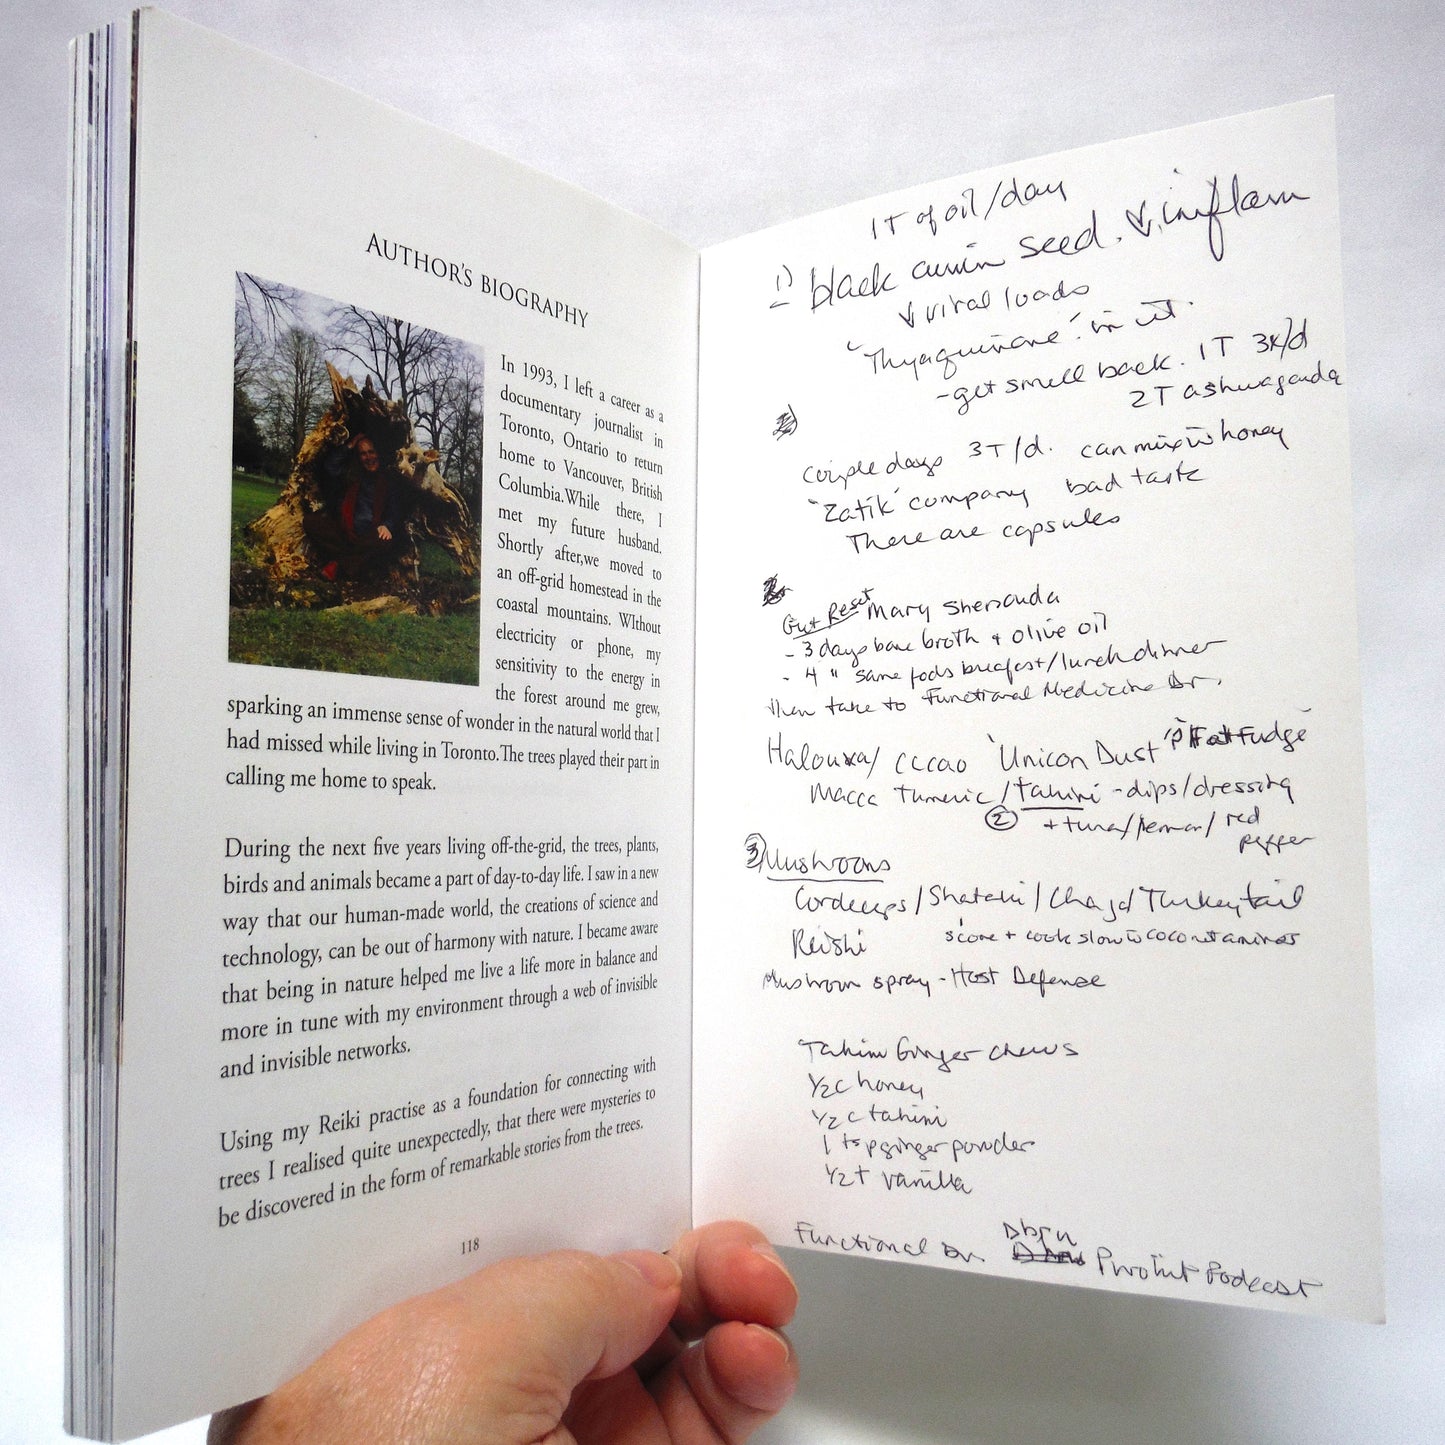 AUTHOR'S BIOGRAPHY
In 1993, I left a career as a
documentary journalist in
Toronto, Ontario to return
home to Vancouver, British
Columbia.While there, I
met my future husband.
Shortly after,we moved to
an off-grid homestead in the
coastal mountains. WIthout
electricity or phone, my
sensitivity to the energy in
the forest around me grew,
sparking an immense sense of wonder in the natural world that I
had missed while living in Toronto.The trees played their part in
calling me home to speak.
During the next five years living off-the-grid, the trees, plants,
birds and animals became a part of day-to-day life. I saw in a new
way that our human-made world, the creations of science and
technology, can be out of harmony with nature. I became aware
that being in nature helped me live a life more in balance and
more in tune with my environment through a web of invisible
and invisible networks.
Using my Reiki practise as a foundation for connecting with
trees I realised quite unexpectedly, that there were mysteries to
be discovered in the form of remarkable stories from the trees.
118
1T of oil/day
1) black cumin seed. ↓ inflam
↓ viral loads
in it.
- get smell back. 1T 3x/d
2T ashwaganda
couple days 3T/d. can mix w honey
'Zatik' company bad taste
There are capsules
Gut Reset Mary
- 3 days bone broth + olive oil
- 4 " same foods breafast/lunch dinner
then take to Functional Medicine Dr.
cccao 'Unicon Dust' Fat Fudge'
Macca Tumeric/tahini - dips/dressing
② + tuna/lemon/red
pepper
③ Mushrooms
Cordeceps/Shataki/Chaga/Turkey tail
Reishi score + cook slow w coconut aminos
Mushroom spray - Host Defense
Tahini Ginger chews
1/2c honey
1/2 c tahini
1 tsp ginger powder
1/2 t vanilla
Functional Dr. Podcast